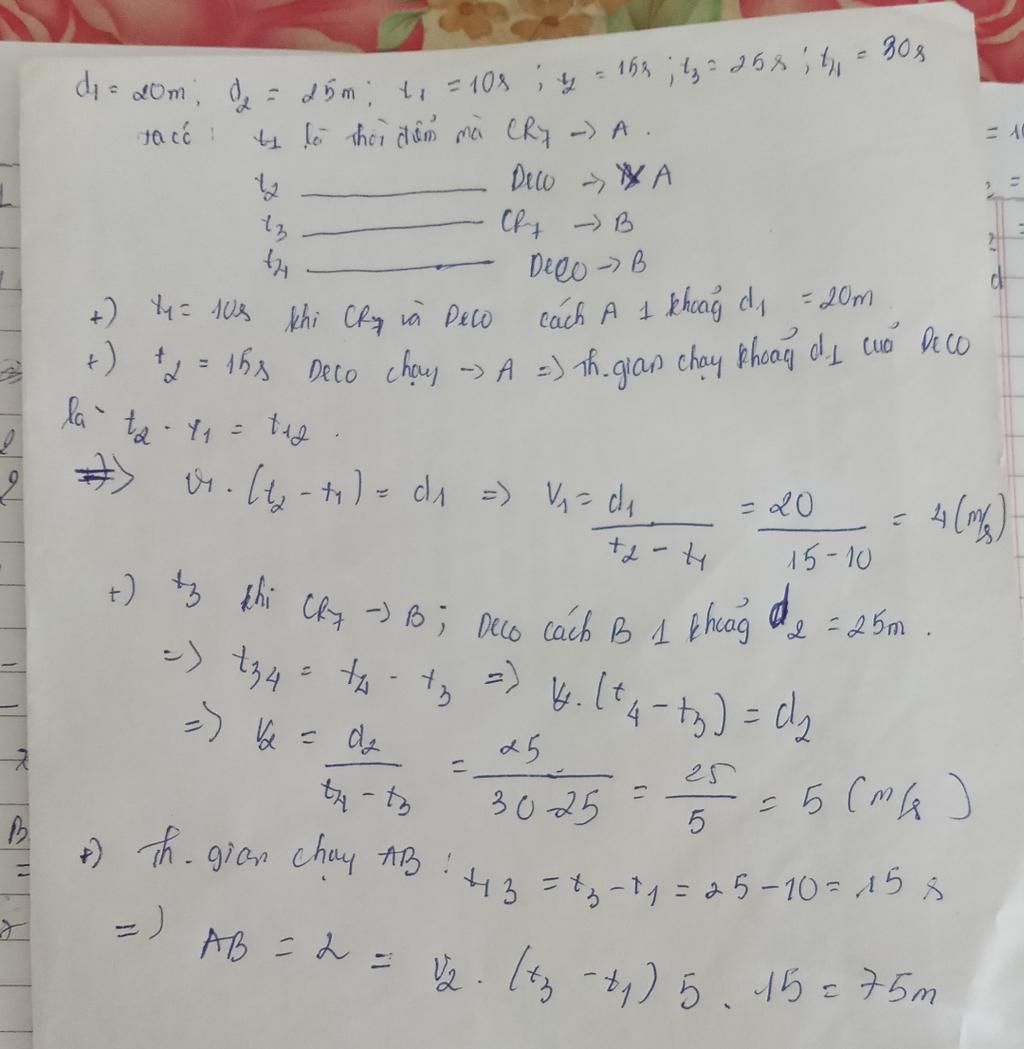 d₁ = 20m; d₂ = 25m; t₁ = 10s; t₂ = 15s; t₃ = 25s; t₄ = 30s
ta có: t₁ là thời điểm mà CR7 → A.
t₂ ——— Deco → A
t₃ ——— CR7 → B
t₄ ——— Deco → B
+) t₁ = 10s khi CR7 và Deco cách A 1 khoảg d₁ = 20m
+) t₂ = 15s Deco chạy → A => Th.gian chạy khoảg d₁ của Deco
là t₂ - t₁ = t₁₂.
=> v₁.(t₂ - t₁) = d₁ => v₁ = d₁/(t₂ - t₁) = 20/(15-10) = 4 (m/s)
+) t₃ khi CR7 → B; Deco cách B 1 khoảg d₂ = 25m.
=> t₃₄ = t₄ - t₃ => v₂.(t₄ - t₃) = d₂
=> v₂ = d₂/(t₄ - t₃) = 25/(30-25) = 25/5 = 5 (m/s)
+) Th.gian chạy AB: t₁₃ = t₃ - t₁ = 25 - 10 = 15 s
=> AB = 2 = v₂.(t₃ - t₁) 5 . 15 = 75m